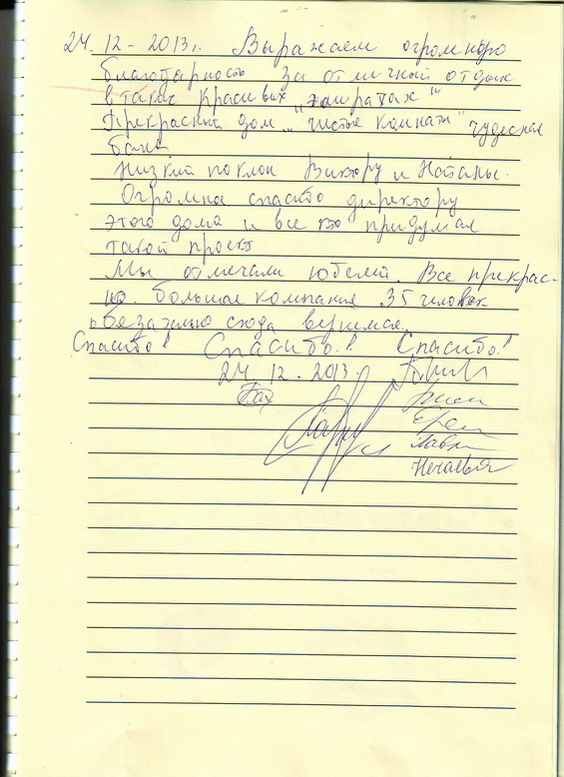 24. 12 - 2013г. Выражаем огромную
благодарность за отличный отдых
в таких красивых "эмиратах"
Прекрасный дом, "чистые комнаты" чудесная
баня
Низкий поклон Виктору и Наталье.
Огромна спасибо директору
этого дома и все кто придумал
такой проект
Мы отмечали юбелей. Все прекрас-
но. большая компания 35 человек
обезательно сюда вернимся.
Спасибо! Спасибо!! Спасибо!!
24. 12. 2013.